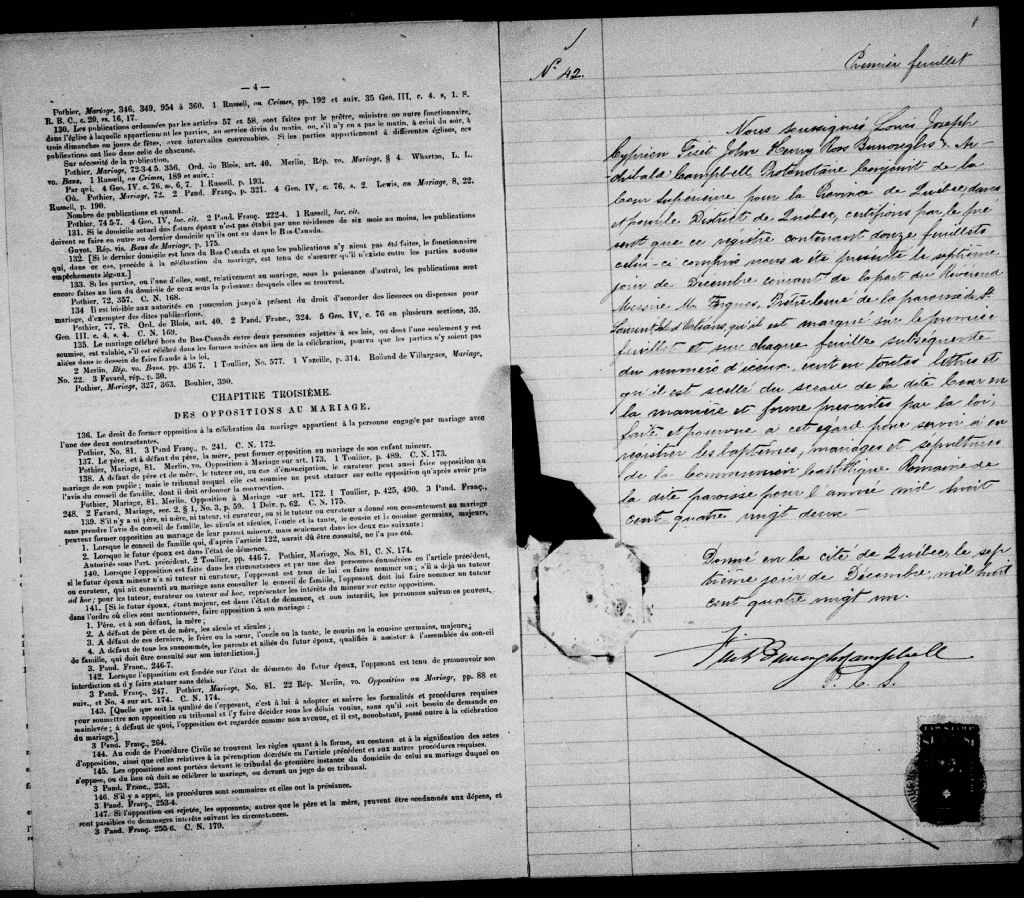 — 4 —
Pothier, Mariage, 346, 349, 954 à 360. 1 Russell, on Crimes, pp. 192 et suiv. 35 Geo. III, c. 4. s, 1. S.
R. B. C., c. 20, ss. 16, 17.
130. Les publications ordonnées par les articles 57 et 58, sont faites par le prêtre, ministre ou autre fonctionnaire,
dans l'église à laquelle appartiennent les parties, au service divin du matin, ou, s'il n'y en a pas le matin, à celui du soir, à
trois dimanches ou jours de fêtes, avec intervalles convenables. Si les parties appartiennent à différentes églises, ces
publications ont lieu dans celle de chacune.
Sur nécessité de la publication.
Pothier, Mariage, 72-3-4 5. 356. Ord. de Blois, art. 40. Merlin, Rép. vo. Mariage, § 4. Wharton, L. L.
vo. Bans. 1 Russell, on Crimes, 189 et suiv. :
Par qui. 4 Geo. IV, c. 76, ss. 6, 7. 1 Russell, p. 193.
Où. Pothier, Mariage, 72. 2 Pand. Franç., p. 321. 4 Geo. IV, c. 76, s. 2. Lewis, on Mariage, 8, 22.
Russell, p. 190.
Nombre de publications et quand.
Pothier, 74 5-7. 4 Geo. IV, loc. cit. 2 Pand. Franç. 222-4. 1 Russell, loc. cit.
131. Si le domicile actuel des futurs époux n'est pas établi par une résidence de six mois au moins, les publications
doivent se faire en outre au dernier domicile qu'ils ont eu dans le Bas-Canada.
Guyot. Rép. vis. Bans de Mariage, p. 175.
132. [Si le dernier domicile est hors du Bas-Canada et que les publications n'y aient pas été faites, le fonctionnaire
qui, dans ce cas, procède à la célébration du mariage, est tenu de s'assurer qu'il n'existe entre les parties aucuns
empêchements légaux.]
133. Si les parties, ou l'une d'elles, sont, relativement au mariage, sous la puissance d'autrui, les publications sont
encore faites au lieu du domicile de ceux sous la puissance desquels elles se trouvent.
Pothier, 72, 357. C. N. 168.
134 Il est loisible aux autorités en possession jusqu'à présent du droit d'accorder des licences ou dispenses pour
mariage, d'exempter des dites publications.
Pothier, 77, 78. Ord. de Blois, art. 40. 2 Pand. Franc., 324. 5 Geo. IV, c. 76 en plusieurs sections, 35.
Geo. III. c. 4, s. 4. C. N. 169.
135. Le mariage célébré hors du Bas-Canada entre deux personnes sujettes à ses lois, ou dont l'une seulement y est
soumise, est valable, s'il est célébré dans les formes usitées au lieu de la célébration, pourvu que les parties n'y soient pas
allées dans le dessein de faire fraude à la loi.
2 Merlin, Rép. vo. Bans. pp. 436 7. 1 Toullier, No. 577. 1 Vazeille, p. 314. Rolland de Villargues, Mariage,
No. 22. 3 Favard, rép., p. 30.
Pothier, Mariage, 327, 363. Bouhier, 390.
CHAPITRE TROISIÈME.
DES OPPOSITIONS AU MARIAGE.
136. Le droit de former opposition à la célébration du mariage appartient à la personne engagée par mariage avec
l'une des deux contractantes.
Pothier, No. 81. 3 Pand Franç., p. 241. C. N. 172.
137. Le père, et à défaut du père, la mère, peut former opposition au mariage de son enfant mineur.
Pothier, Mariage, 81. Merlin, vo. Opposition à Mariage sur art. 173. 1 Toullier, p. 489. C. N. 173.
138. A défaut de père et de mère, le tuteur ou, au cas d'émancipation, le curateur peut aussi faire opposition au
mariage de son pupile ; mais le tribunal auquel elle est soumise ne peut statuer sur cette opposition qu'après avoir pris
l'avis du conseil de famille, dont il doit ordonner la convocation.
Pothier, Mariage, 81. Merlin, Opposition à Mariage sur art. 172. 1 Toullier, p. 425, 490. 3 Pand. Franç.,
248. 2 Favard, Mariage, sec. 2, § 1, No. 3, p. 59. 1 Delv. p. 62. C. N. 175.
139. S'il n'y a ni père, ni mère, ni tuteur, ni curateur, ou si le tuteur ou curateur a donné son consentement au mariage
sans prendre l'avis du conseil de famille, les aïeuls et aïeules, l'oncle et la tante, le cousin et la cousine germains, majeurs,
peuvent former opposition au mariage de leur parent mineur, mais seulement dans les deux cas suivants :
1. Lorsque le conseil de famille qui, d'après l'article 122, aurait dû être consulté, ne l'a pas été.
2. Lorsque le futur époux est dans l'état de démence.
Autorités sous l'art. précédent. 2 Toullier, pp. 446 7. Pothier, Mariage, No. 81, C. N. 174.
140. Lorsque l'opposition est faite dans les circonstances et par une des personnes énumérées en l'article précédent,
si le futur époux mineur n'a ni tuteur ni curateur, l'opposant est tenu de lui en faire nommer un ; s'il a déjà un tuteur
ou curateur, qui ait consenti au mariage sans consulter le conseil de famille, l'opposant doit lui faire nommer un tuteur
ad hoc ; pour les tuteur, curateur ou tuteur ad hoc, représenter les intérêts du mineur sur cette opposition.
141. [Si le futur époux, étant majeur, est dans l'état de démence, et non interdit, les personnes suivantes peuvent,
dans l'ordre où elles sont mentionnées, faire opposition à son mariage :
1. Père, et à son défaut, la mère ;
2. A défaut de père et de mère, les aïeuls et aïeules ;
3. A défaut de ces derniers, le frère ou la sœur, l'oncle ou la tante, le cousin ou la cousine germains, majeurs ;
4. A défaut de tous les susnommés, les parents et alliés du futur époux, qualifiés à assister à l'assemblée du conseil
de famille, qui doit être consulté sur son interdiction.]
3. Pand. Franc., 246-7.
142. Lorsque l'opposition est fondée sur l'état de démence du futur époux, l'opposant est tenu de promouvoir son
interdiction et d'y faire statuer sans délai.
3 Pand. Franç., 247. Pothier, Mariage, No. 81. 22 Rép. Merlin, vo. Opposition au Mariage, pp. 88 et
suiv., et No. 4 sur art. 174. C. N. 174.
143. [Quelle que soit la qualité de l'opposant, c'est à lui à adopter et suivre les formalités et procédures requises
pour soumettre son opposition au tribunal et l'y faire décider sous les délais voulus, sans qu'il soit besoin de demande en
mainlevée ; à défaut de quoi, l'opposition est regardée comme non avenue, et il est, nonobstant, passé outre à la célébration
du mariage.]
3 Pand. Franç., 264.
144. Au code de Procédure Civile se trouvent les règles quant à la forme, au contenu et à la signification des actes
d'opposition, ainsi que celles relatives à la péremption décrétée en l'article précédent et aux autres procédures requises.
145. Les oppositions sont portées devant le tribulal de première instance du domicile de celui au mariage duquel on
s'oppose, ou du lieu où doit se célébrer le mariage, ou devant un juge de ce tribunal.
3 Pand. Franc., 253.
146. S'il y a appel, les procédures sont sommaires et elles ont la préséance.
3 Pand. Franç., 253-4.
147. Si l'opposition est rejetée, les opposants, autres que le père et la mère, peuvent être condamnés aux dépens, et
sont passibles de dommages intérêts suivant les circonstances.
3 Pand. Franç. 255-6. C. N. 179.
Nº 42.
Premier feuillet
Nous soussignés Louis Joseph
Cyprien Fiset John Henry Ross Burroughs & Ar-
chibald Campbell Protonotaire Conjoint de la
Cour supérieure pour la Province de Québec dans
et pour le District de Québec, certifions par le pré
sent que ce registre contenant douze feuillets
celui-ci compris nous a été présenté le septième
jour de Décembre courant de la part du Révérend
Messire M. Forgues, Prêtre Curé de la paroisse de St.
Laurent Isl d'Orléans, qu'il est marqué sur le premier
feuillet et sur chaque feuillet subséquent
du numéro d'iceux, écrit en toutes lettres et
qu'il est scellé du sceau de la dite Cour en
la manière et forme prescrites par la loi,
faite et pourvue à cet égard pour servir à en
registrer les baptêmes, mariages et sépultures
de la Communion Catholique Romaine de
la dite paroisse pour l'année mil huit
cent quatre vingt deux —
Donné en la cité de Québec, le sep
tième jour de Décembre mil huit
cent quatre vingt un.
Fiset Burroughs Campbell
P. C. S.
LAW STAMP